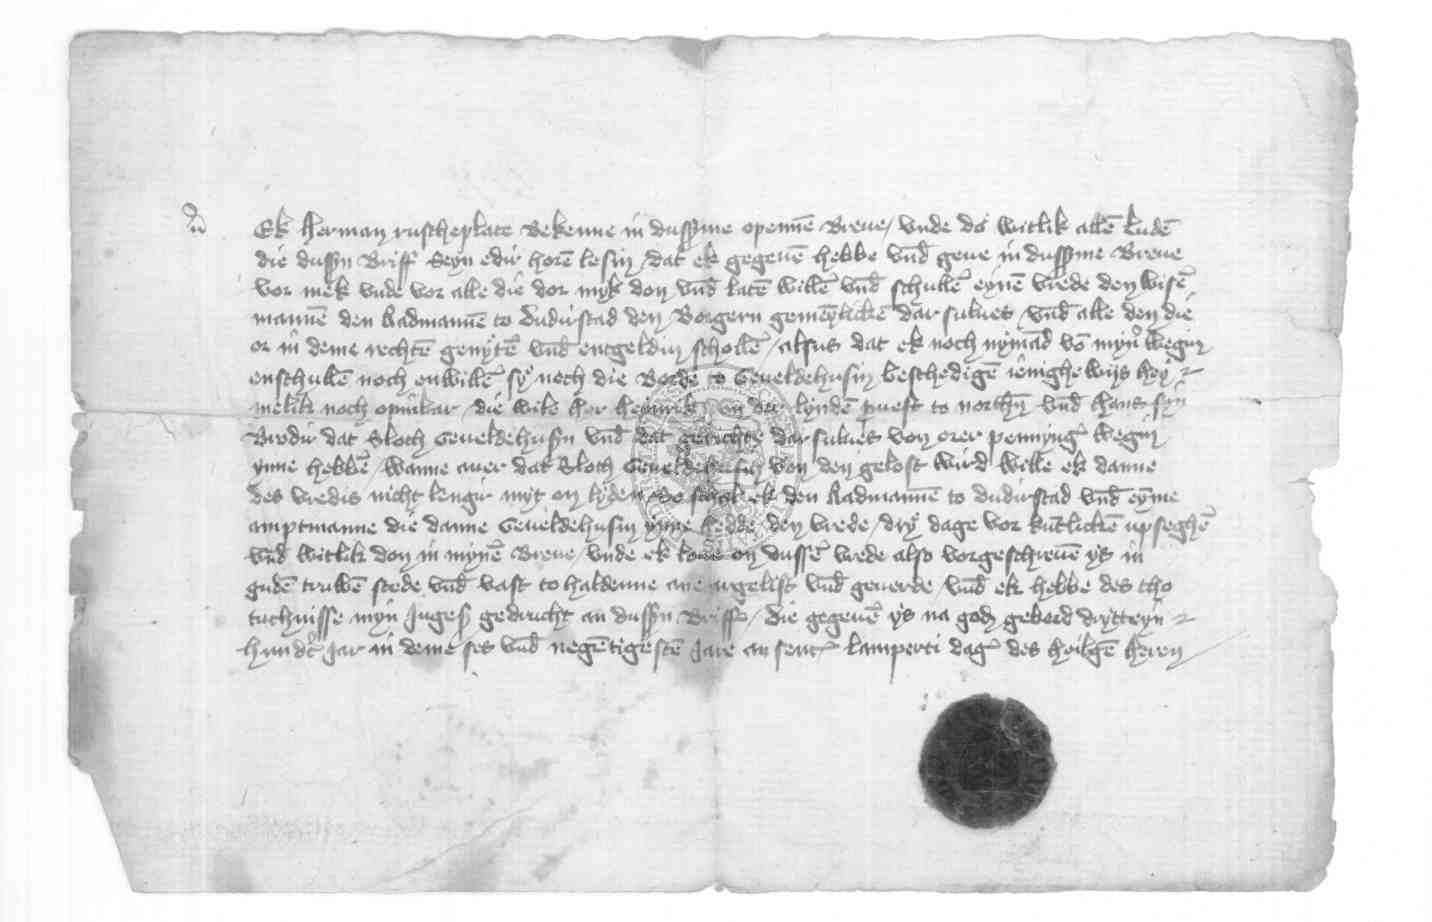 Ek Herman ruscheplate Bekenne in dussme openē Breue / vnde do witlik allē Ludē
die dussin Briff Seyn edir horē lesin / dat ek gegeuē hebbe vnd geue in dussme Breue
vor mek vnde vor alle die dor myk don vnd latē willē vnd schullē eynē vrede den wisē
mannē den Radmannē to dudirstad den Borgern gemēylickē dar sulues / vnd alle den die
or in deme rechtē genytē vnd entgeldin schollē / alsus dat ek noch nymād vō myn wegin
enschullē noch enwillē sy noch die Borde to Geueldehusin beschedigē ienighe wijs hey
melik noch opinbar / die wile her heinrik von der lyndē puest to northn vnd hans syn
Brodir dat Sloch Geueldehusin vnd dat gerichte dar sulues von orer pennyng wegin
ynne hebbē / wanne auer dat Sloch Geueldehusin von den gelost wird wille ek danne
des vredis nicht lengir myt on lyden / so schal ek den Radmannē to dudirstad vnd eyme
amptmanne die danne Geueldehusin ynne hedde den vrede / dry dage vor kūtlickē upseghē
vnd witlik don in mynē Breue / vnde ek loue on dussē vrede also vorgeschreuē ys in
gudē truwē stede vnd vast to haldenne ane argelist vnd geuerde / vnd ek hebbe des tho
tuchnisse myn Ingesi gedrucht an dussin Briff / die gegeuē ys na gods gebord dryttteyn
hundt Jar in deme ses vnd negētigestē Jare an sente lamperti dag des heilgē heren